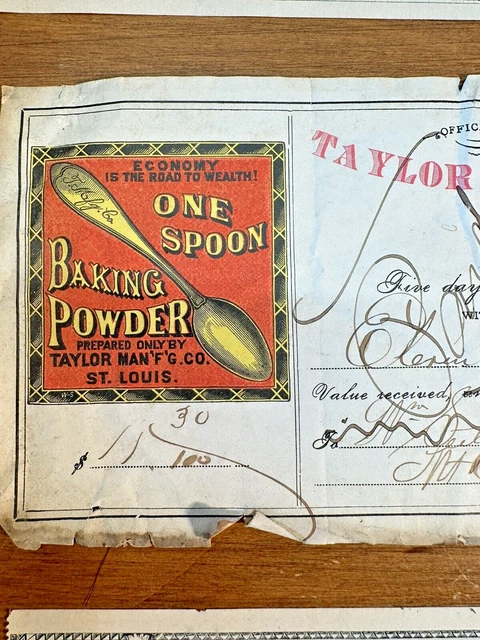 ECONOMY
IS THE ROAD TO WEALTH!
ONE
SPOON
BAKING
POWDER
PREPARED ONLY BY
TAYLOR MAN'F'G. CO.
ST. LOUIS.
$ 11 30/100
OFFIC
TAYLOR
Five day
WI
Value received, a
To